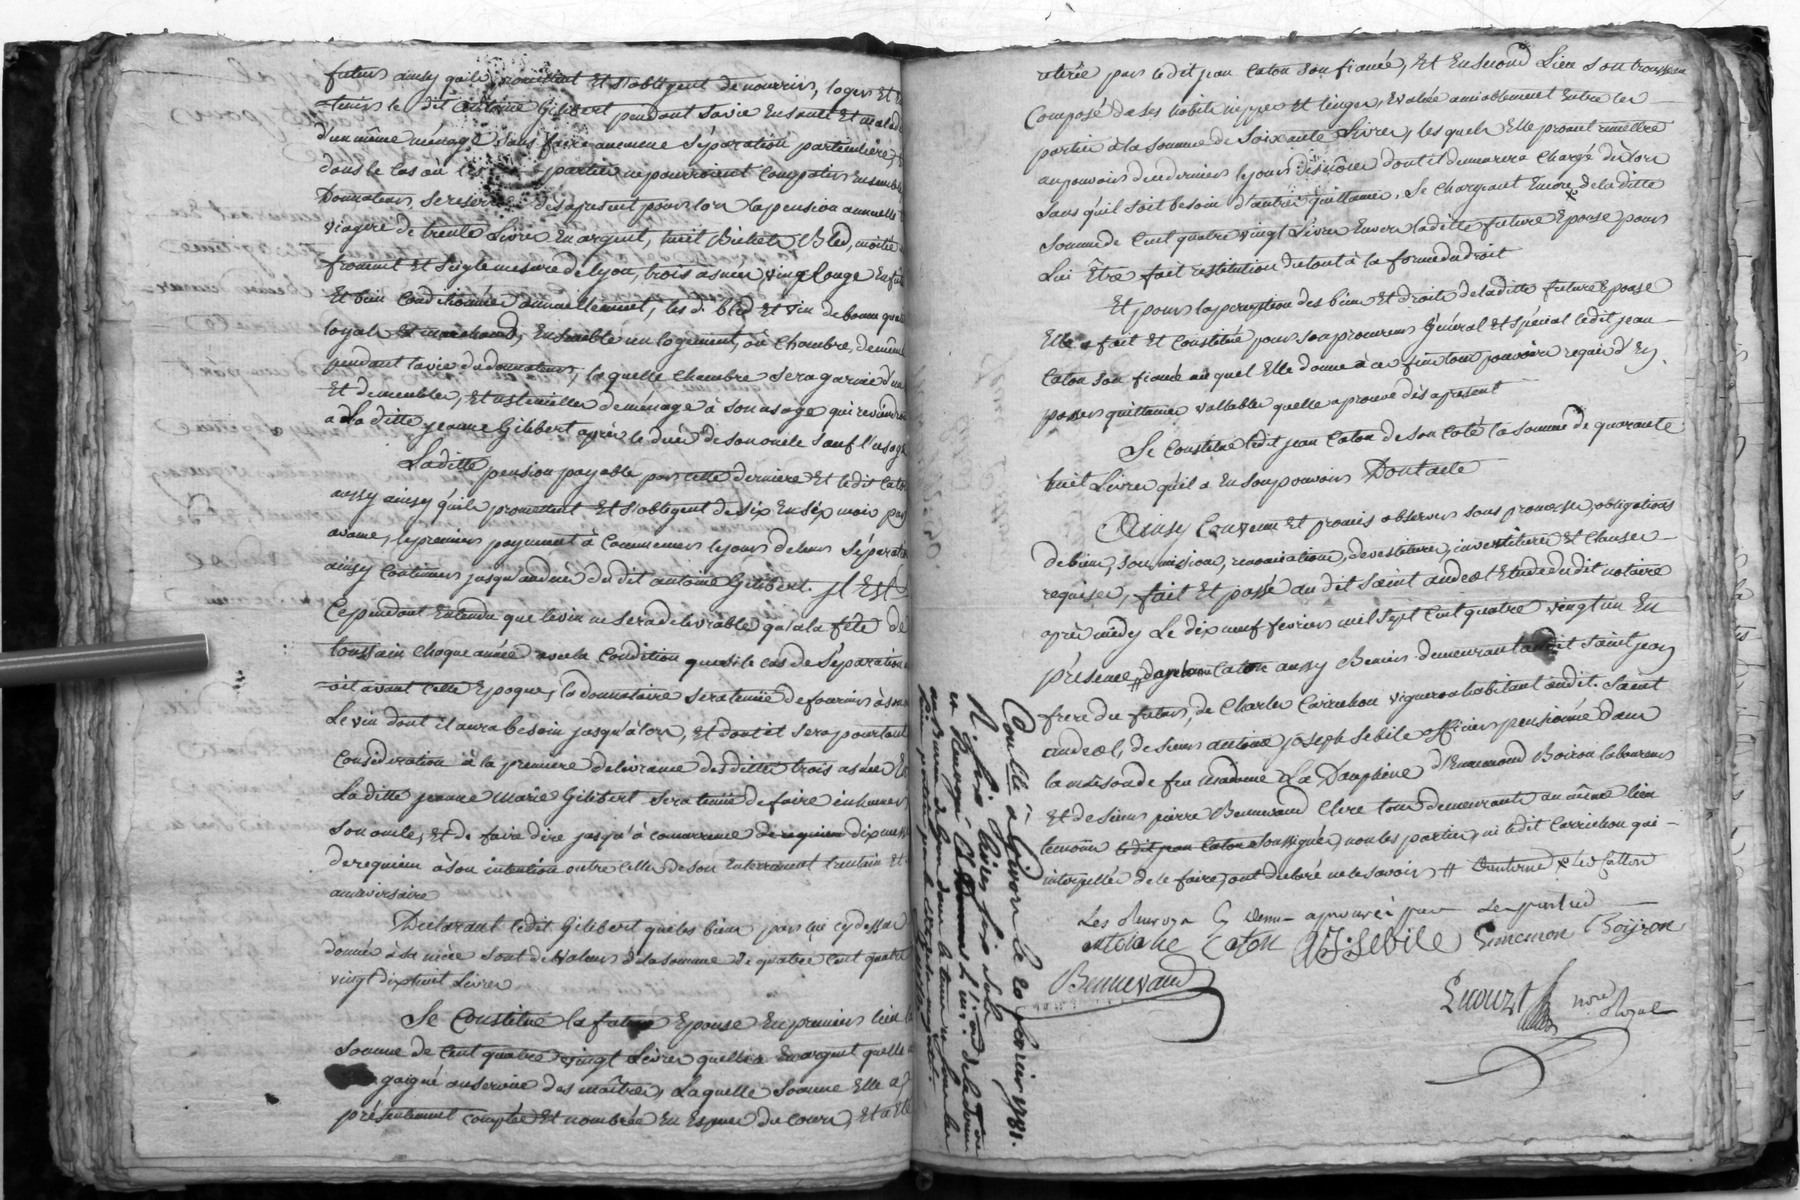 futurs ainsy qu'ils promettent Et s'obligent de nourrir, loger Et
tenir le dit antoine Gilibert pendant sa vie En santé Et malad
d'un même ménage sans faire aucune séparation particulière,
dans le cas où les partie, ne pourroient compatir Ensemble
Donnateur, se reserve dès apresent pour lors la pension annuelle
viagere de trente Livres En argent, huit Bichets Bled, moitié
froment Et seigle mesure de lyon, trois asnées vin rouge
Et bien conditionnée annuellement, les d. bled Et vin de bonne qua
loyale Et marchand, Ensemble un logement, où chambre, de
pendant la vie du donnateur, laquelle chambre sera garnie d'un
Et de meubles, Et ustencilles de ménage à son usage qui reviendron
a La ditte jeanne Gilibert après le ducès de son oncle sauf l'usage
La ditte pension payable par cette derniere Et ledit Caton
aussy ainsy qu'ils promettent Et s'obligent de six En six mois par
avance, le premier payement à Commencer le jour de leur Séparation
ainsy continuer jusqu'au ducès du dit antoine Gilibert. Il Est
Cependant Entendu que le vin ne sera delivrable qu'a la fête de
toussain chaque année avec la condition que si le cas de Séparation
oit avant cette Epoque, la donnataire sera tenüe de fournir à son
Le vin dont il aura besoin jusqu'alors, Et dont il sera pourtant
Considération à la premiere delivrance des dittes trois asnées Et
La ditte jeanne Marie Gilibert sera tenüe de faire inhumer
son oncle, Et de faire dire jusqu'à concurrence de requiem dix messes
de requiem à son intention outre celles de son Enterrement Et
anniversaire
Déclarant ledit Gilibert que les biens par lui cy dessus
donnés à sa nièce sont de valeur de la somme de quatre cent quatre
vingt dix huit Livres
Se Constitue la future Epouse En premier lieu la
somme de Cent quatre vingt Livres En argent quelle
gaigné au service des maîtres, Laquelle somme Elle a
présentement comptée Et nombrée En Espece du cours, Et a Eté
retirée par le dit jean Caton son fiancé, Et En second Lieu son trousseau
Composé de ses habits nippes Et linges, Evaluée amiablement Entre les
partie à la somme de Soixante Livres, lesquels Elle promet remettre
au pouvoir de ce dernier le jour des nôces dont il demeurera chargé dès lors
sans qu'il soit besoin d'autre quittance, se chargeant Encore de la ditte
somme de Cent quatre vingt Livres Envers la ditte future Epouse pour
Lui Être fait restitution du tout à la forme du droit
Et pour la perception des biens Et droits de la ditte future Epouse
Elle a fait Et Constitué pour son procureur Général Et spécial ledit jean
Caton son fiancé auquel Elle donne à ces fins tout pouvoir requis d'En
passer quittances vallables quelle aprouve dès apresent
Se Constitue ledit jean Caton de son coté la somme de quarante
huit Livres qu'il a En son pouvoir Dont acte
Ainsy Convenu Et promis observer sous promesse, obligations
de biens, soumission, renonciations, devestiture, investiture Et clauses
requises, fait Et passé audit saint andeol Etude dudit notaire
après midy Le dix neuf fevrier mil sept cent quatre vingt un En
présence Caton aussy demeurant audit saint jean
frere du futur, de Charles Carrichon vigneron habitant audit Saint
andeol, de sieur antoine joseph Sebile officier pensionné dans
la maison de feu madame La Dauphine d'Ennemond Boiron laboureur
Et de sieur pierre Bennevaud Clerc tous demeurants au même lieu
temoins le dit jean Caton soussignés, non les parties, ni ledit Carrichon qui
interpellés de le faire, ont declaré ne le savoir
Les Renvoys cy dessus aprouvés par les parties
antoine Caton AJ. Sebile Ennemon Boyron
Bennevaud
nore Royal
Conllé à Givors le 20 fevrier 1781.
R. six Livres six sols